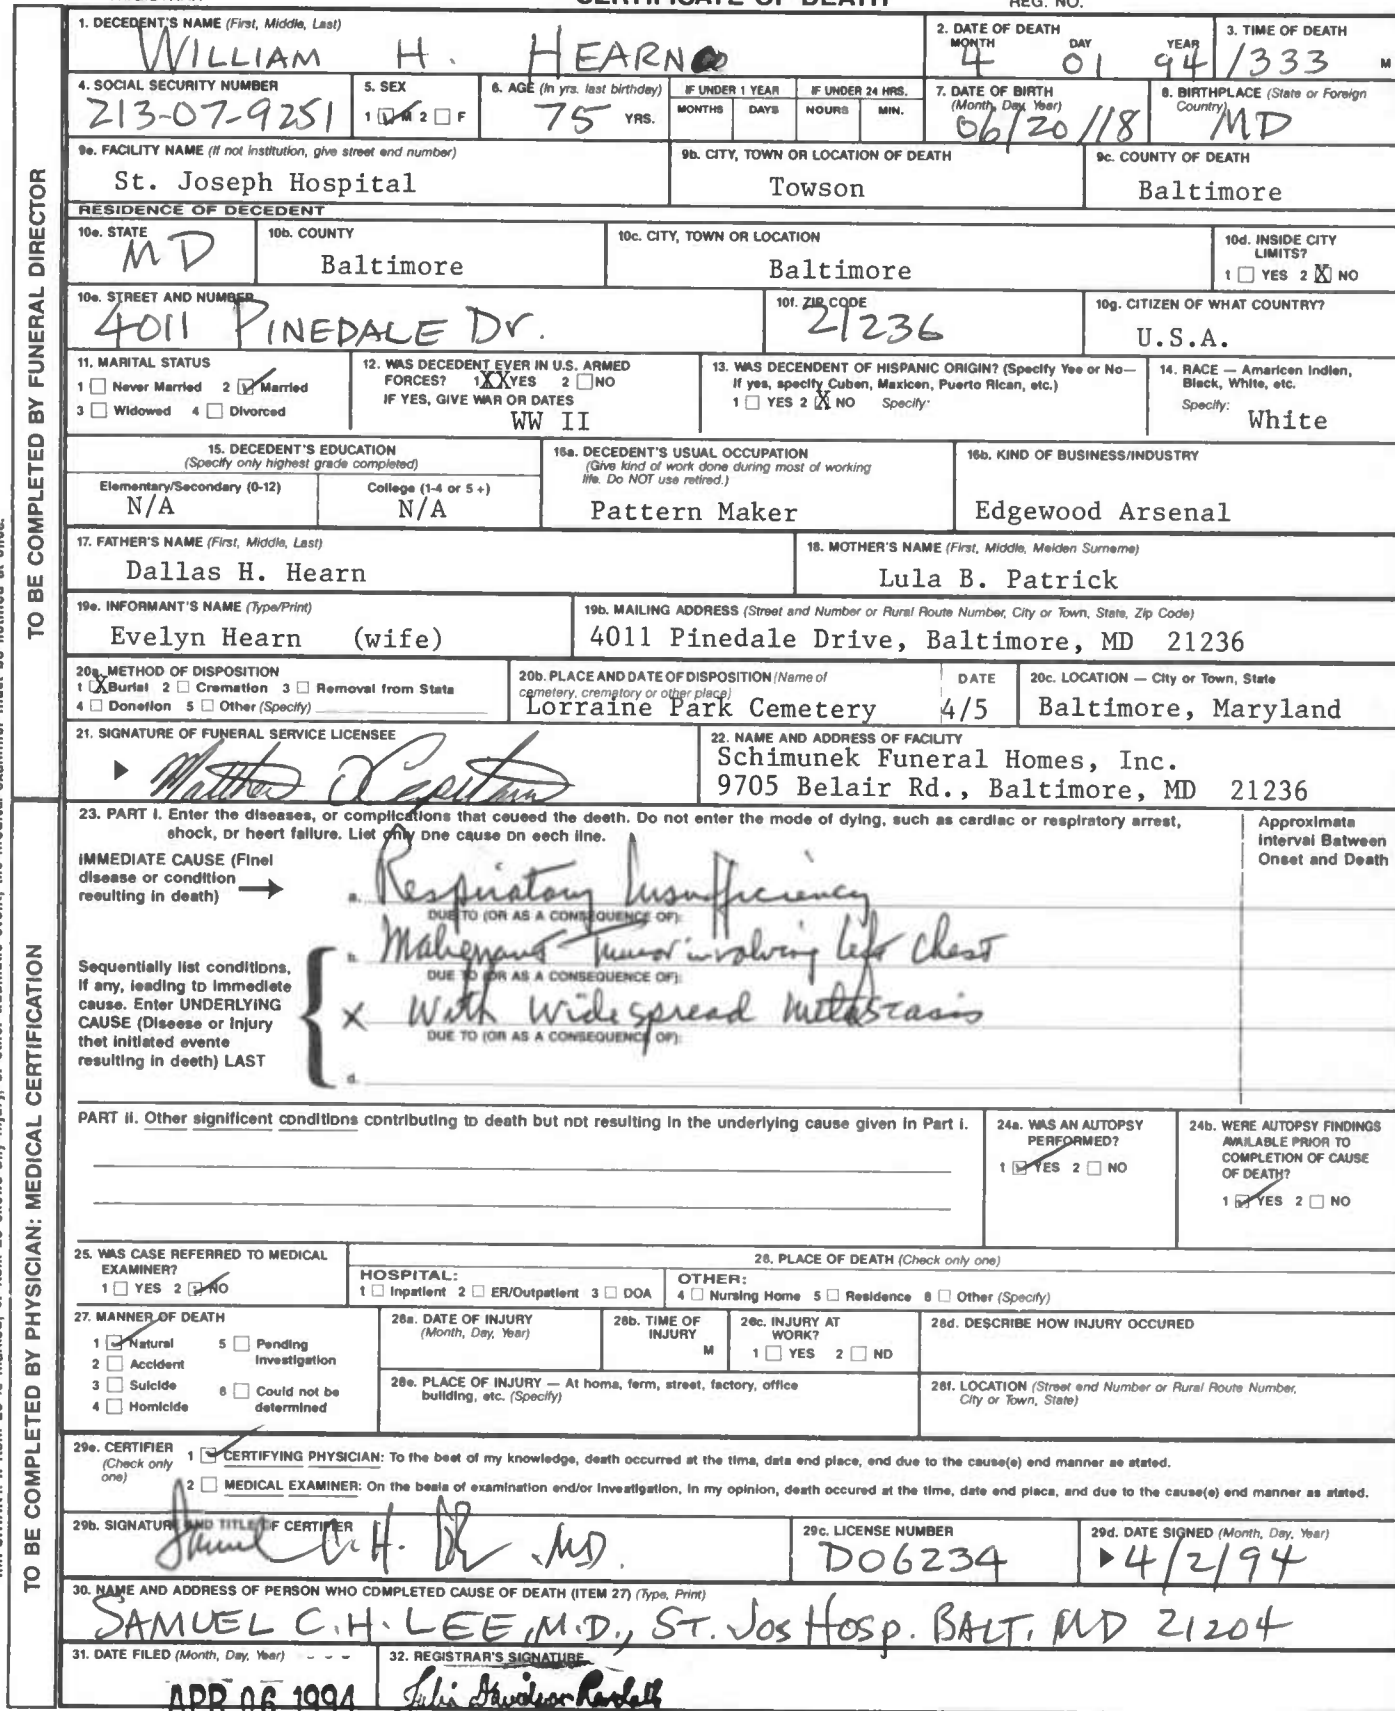 CERTIFICATE OF DEATH
REG. NO.
1. DECEDENT'S NAME (First, Middle, Last)
WILLIAM H. HEARN
2. DATE OF DEATH
MONTH DAY YEAR
4 01 94
3. TIME OF DEATH
1333 M
4. SOCIAL SECURITY NUMBER
213-07-9251
5. SEX
1 M 2 F
6. AGE (In yrs. last birthday)
75 YRS.
IF UNDER 1 YEAR
MONTHS DAYS
IF UNDER 24 HRS.
HOURS MIN.
7. DATE OF BIRTH
(Month, Day, Year)
06/20/18
8. BIRTHPLACE (State or Foreign
Country)
MD
9a. FACILITY NAME (If not institution, give street and number)
St. Joseph Hospital
9b. CITY, TOWN OR LOCATION OF DEATH
Towson
9c. COUNTY OF DEATH
Baltimore
RESIDENCE OF DECEDENT
10a. STATE
MD
10b. COUNTY
Baltimore
10c. CITY, TOWN OR LOCATION
Baltimore
10d. INSIDE CITY
LIMITS?
1 YES 2 X NO
10e. STREET AND NUMBER
4011 PINEDALE Dr.
10f. ZIP CODE
21236
10g. CITIZEN OF WHAT COUNTRY?
U.S.A.
11. MARITAL STATUS
1 Never Married 2 Married
3 Widowed 4 Divorced
12. WAS DECEDENT EVER IN U.S. ARMED
FORCES? 1 XX YES 2 NO
IF YES, GIVE WAR OR DATES
WW II
13. WAS DECENDENT OF HISPANIC ORIGIN? (Specify Yes or No—
If yes, specify Cuban, Mexican, Puerto Rican, etc.)
1 YES 2 X NO Specify:
14. RACE — American Indian,
Black, White, etc.
Specify:
White
15. DECEDENT'S EDUCATION
(Specify only highest grade completed)
Elementary/Secondary (0-12)
N/A
College (1-4 or 5 +)
N/A
16a. DECEDENT'S USUAL OCCUPATION
(Give kind of work done during most of working
life. Do NOT use retired.)
Pattern Maker
16b. KIND OF BUSINESS/INDUSTRY
Edgewood Arsenal
17. FATHER'S NAME (First, Middle, Last)
Dallas H. Hearn
18. MOTHER'S NAME (First, Middle, Maiden Surname)
Lula B. Patrick
19a. INFORMANT'S NAME (Type/Print)
Evelyn Hearn (wife)
19b. MAILING ADDRESS (Street and Number or Rural Route Number, City or Town, State, Zip Code)
4011 Pinedale Drive, Baltimore, MD 21236
20a. METHOD OF DISPOSITION
1 X Burial 2 Cremation 3 Removal from State
4 Donation 5 Other (Specify)
20b. PLACE AND DATE OF DISPOSITION (Name of
cemetery, crematory or other place)
Lorraine Park Cemetery
DATE
4/5
20c. LOCATION — City or Town, State
Baltimore, Maryland
21. SIGNATURE OF FUNERAL SERVICE LICENSEE
22. NAME AND ADDRESS OF FACILITY
Schimunek Funeral Homes, Inc.
9705 Belair Rd., Baltimore, MD 21236
TO BE COMPLETED BY FUNERAL DIRECTOR
23. PART I. Enter the diseases, or complications that caused the death. Do not enter the mode of dying, such as cardiac or respiratory arrest,
shock, or heart failure. List only one cause on each line.
Approximate
Interval Between
Onset and Death
IMMEDIATE CAUSE (Final
disease or condition
resulting in death)
a. Respiratory Insufficiency
DUE TO (OR AS A CONSEQUENCE OF):
b. Malignant Tumor involving left chest
DUE TO (OR AS A CONSEQUENCE OF):
Sequentially list conditions,
if any, leading to immediate
cause. Enter UNDERLYING
CAUSE (Disease or injury
that initiated events
resulting in death) LAST
X With widespread metastasis
DUE TO (OR AS A CONSEQUENCE OF):
d.
PART II. Other significant conditions contributing to death but not resulting in the underlying cause given in Part I.
24a. WAS AN AUTOPSY
PERFORMED?
1 YES 2 NO
24b. WERE AUTOPSY FINDINGS
AVAILABLE PRIOR TO
COMPLETION OF CAUSE
OF DEATH?
1 YES 2 NO
25. WAS CASE REFERRED TO MEDICAL
EXAMINER?
1 YES 2 NO
26. PLACE OF DEATH (Check only one)
HOSPITAL:
1 Inpatient 2 ER/Outpatient 3 DOA
OTHER:
4 Nursing Home 5 Residence 6 Other (Specify)
27. MANNER OF DEATH
1 Natural 5 Pending
Investigation
2 Accident
3 Suicide 6 Could not be
determined
4 Homicide
28a. DATE OF INJURY
(Month, Day, Year)
28b. TIME OF
INJURY
M
28c. INJURY AT
WORK?
1 YES 2 NO
28d. DESCRIBE HOW INJURY OCCURED
28e. PLACE OF INJURY — At home, farm, street, factory, office
building, etc. (Specify)
28f. LOCATION (Street and Number or Rural Route Number,
City or Town, State)
29a. CERTIFIER
(Check only
one)
1 CERTIFYING PHYSICIAN: To the best of my knowledge, death occurred at the time, date and place, and due to the cause(s) and manner as stated.
2 MEDICAL EXAMINER: On the basis of examination and/or investigation, in my opinion, death occured at the time, date and place, and due to the cause(s) and manner as stated.
29b. SIGNATURE AND TITLE OF CERTIFIER
Samuel C. H. Lee, MD.
29c. LICENSE NUMBER
D06234
29d. DATE SIGNED (Month, Day, Year)
4/2/94
30. NAME AND ADDRESS OF PERSON WHO COMPLETED CAUSE OF DEATH (ITEM 27) (Type, Print)
SAMUEL C.H. LEE, M.D., ST. Jos Hosp. BALT. MD 21204
31. DATE FILED (Month, Day, Year)
APR 06 1994
32. REGISTRAR'S SIGNATURE
TO BE COMPLETED BY PHYSICIAN: MEDICAL CERTIFICATION